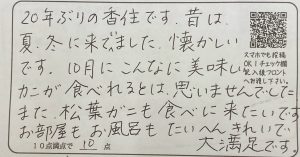 20年ぶりの香住です。昔は
夏、冬に来てました。懐かしい
です。10月にこんなに美味しい
カニが食べれるとは、思いませんでした
また、松葉ガニも食べに来たいです
お部屋もお風呂もたいへんきれいで
大満足です。
10点満点で 10 点
スマホでも投稿
OK！チェック欄
記入後フロント
へお渡し下さい。